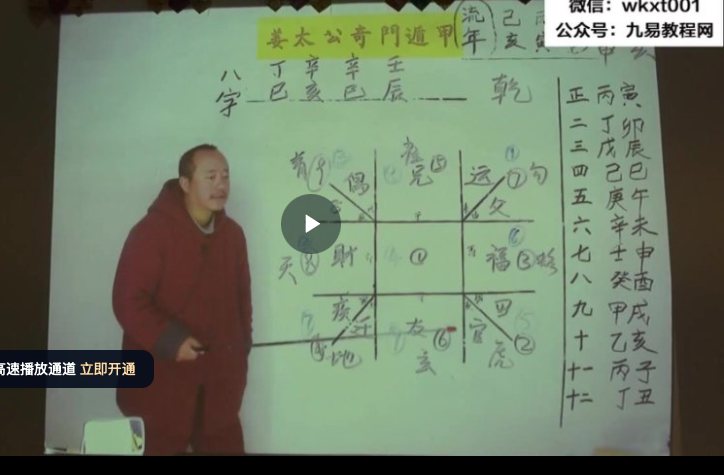 微信：wkxt001
公众号：九易教程网
姜太公奇門遁甲
流年
己亥
八字
丁巳
辛亥
辛巳
壬辰
乾
偶
兄
⑤
运
⑦
勾
父
財
①
福
③
疾
地
友
⑥
玄
官
②
虎
正 丙寅
二 丁卯
三 戊辰
四 己巳
五 庚午
六 辛未
七 壬申
八 癸酉
九 甲戌
十 乙亥
十一 丙子
十二 丁丑
高速播放通道 立即开通